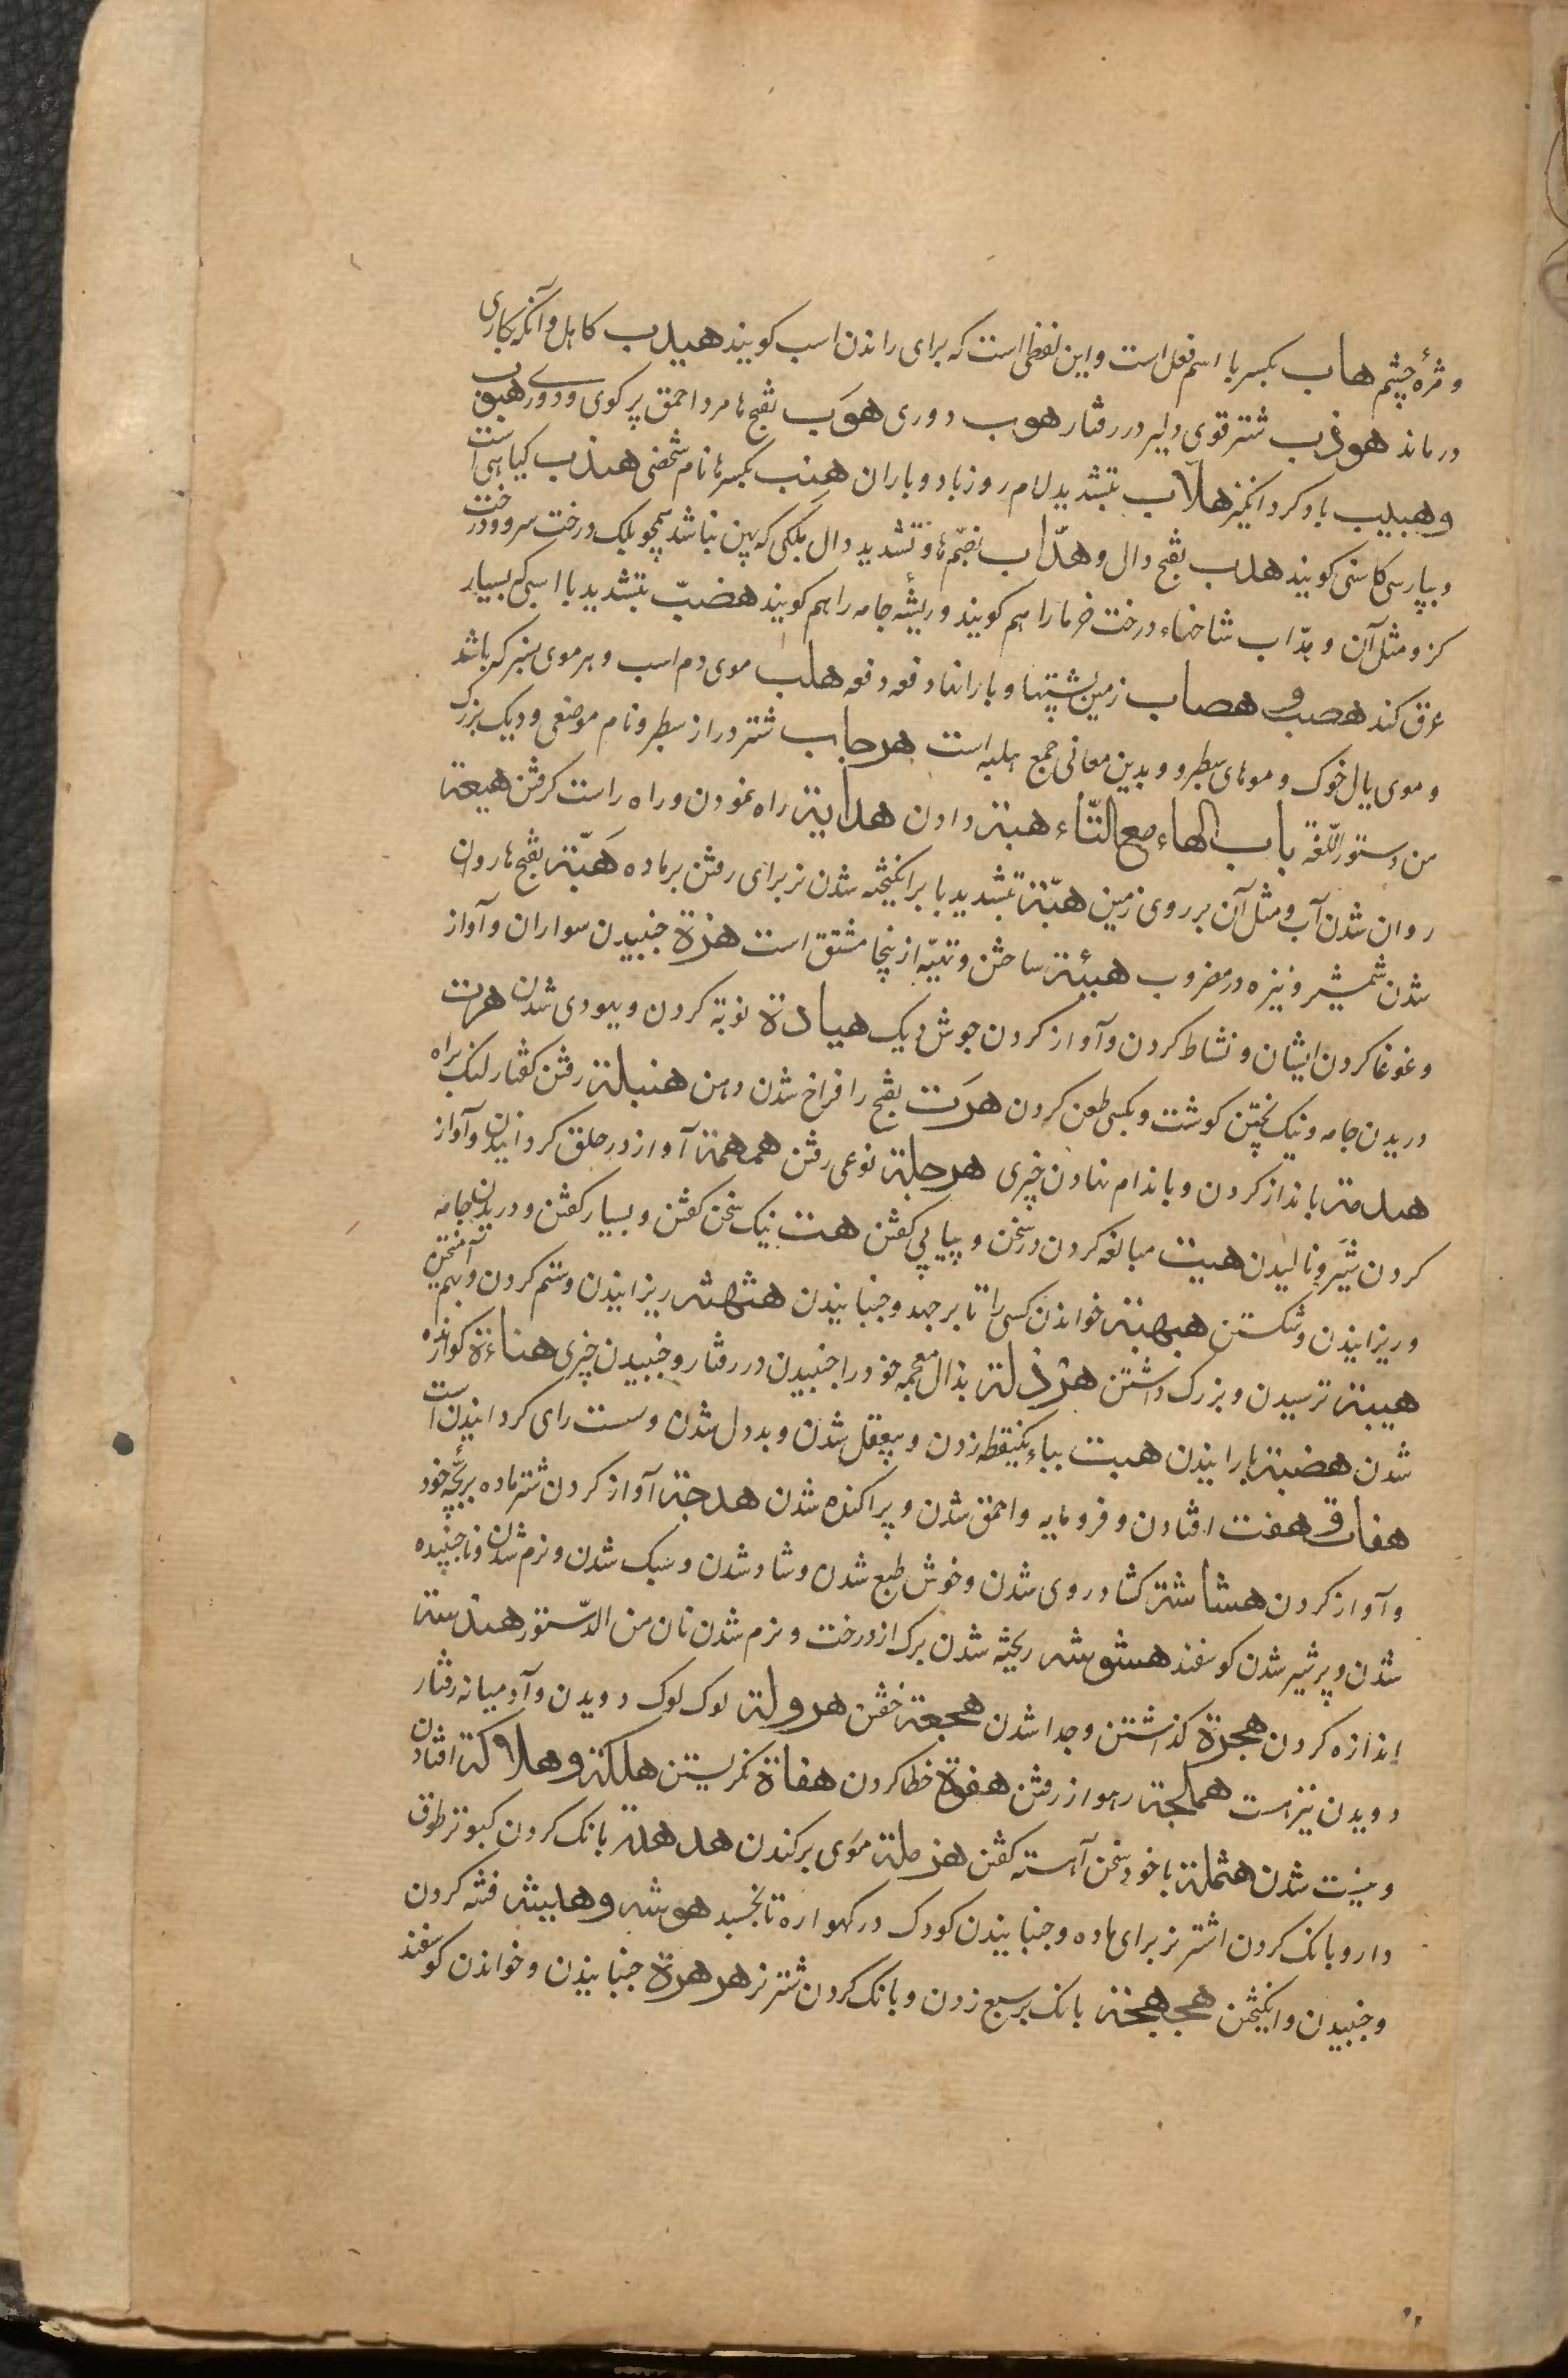 ومژهٔ چشم هاب بکسر با اسم فعل است و این لفظی است که برای راندن اسب کویند هیدب کاهل وآنکه بکاری
درماند هوذب شتر قوی و لیر در رفتار هوب دوری هوَب بفتح ها مرد احمق پر کوی ودور هبوب
وهبیب باد کرد انکیز هلّاب بتشدید لام روز باد و باران هنب بکسر ها نام شخصی هندب کیاهی است
و بپارسی کاسنی کویند هدب بفتح دال و هدّاب بضمّ ها وتشدید دال بلکی که پهن نباشد همچو بلک درخت سرو ودرخت
کز و مثل آن و هدّاب شاخهاء درخت خرما را هم کویند و ریشهٔ جامه را هم کویند هضبّ بتشدید با اسبی که بسیار
عرق کند هصب و هصاب زمین پشتها و بارانها دفعه دفعه هلب موی دم اسب و هر موی سبر که باشد
و موی یال خوک و موهای سطبر و وبدین معانی جمع هلبه است هرجاب شتر دراز سطبر و نام موضعی و دیک بزرک
من دستور اللّغة باب الهاء مع التّاء هبة دادن هدایة راه نمودن و راه راست کرفتن هیعة
روان شدن آب و مثل آن بر روی زمین هبّة بتشدید با برانکیخته شدن نر برای رفتن بر ماده هَبّة بفتح ها روان
شدن شمشیر و نیزه در مضروب هیئة ساختن و تهیّه از ینجا مشتق است هزة جنبیدن سواران و آواز
و غوغا کردن ایشان و نشاط کردن و آواز کردن جوش دیک هیادة توبة کردن و یهودی شدن هرت
دریدن جامه و نیک پختن کوشت و بکسی طعن کردن هرَت بفتح را فراخ شدن دهن هنبلة رفتن کفتار لنک براه
هدمة بانداز کردن و باندام نهادن چیزی هرجلة نوعی رفتن همهمة آواز در حلق کردانیدن و آواز
کردن شیر و نالیدن هیت مبالغه کردن در سخن و پیاپی کفتن هت نیک سخن کفتن و بسیار کفتن و دریدن جامه
و ریزانیدن و شکستن هبهبة خواندن کسی را تا برجهد و جنبانیدن هثهثه ریزانیدن و ستم کردن و بهم آمیختن
هیبة ترسیدن و بزرک داشتن هرذلة بذال معجمه خود را جنبیدن در رفتار و جنبیدن چیزی هناءة کوارنده
شدن هضبة بارانیدن هبت بباء یکنقطه زدن و بیعقل شدن و بددل شدن و سست رای کردانیدن است
هفات و هفت افتادن و فرومایه و احمق شدن و پراکنده شدن هدجة آواز کردن شتر ماده بر بچّهٔ خود
و آواز کردن هشاشة کشاد روی شدن و خوش طبع شدن و شاد شدن و سبک شدن و نرم شدن و ناجنبیده
شدن و پر شیر شدن کوسفند هشوشه ریخته شدن برک از درخت و نرم شدن نان من الدّستور هندسة
اندازه کردن هجرة کذاشتن و جدا شدن هجعة خفتن هرولة لوک لوک دویدن و آدمیانه رفتار
دویدن نیز است هملجة رهوار رفتن هفوة خطا کردن هفاة نکریستن هلکة و هلاکة افتادن
و نیست شدن هثملة با خود سخن آهسته کفتن هزملة موی برکندن هدهدة بانک کردن کبوتر طوق
دار و بانک کردن اشتر نر برای ماده و جنبانیدن کودک در کهواره تا بخسبد هوشه و هلیشه فتنه کردن
و جنبیدن و انکیختن هجهجة بانک بر سبع زدن و بانک کردن شتر نر هرهرة جنبانیدن و خواندن کوسفند